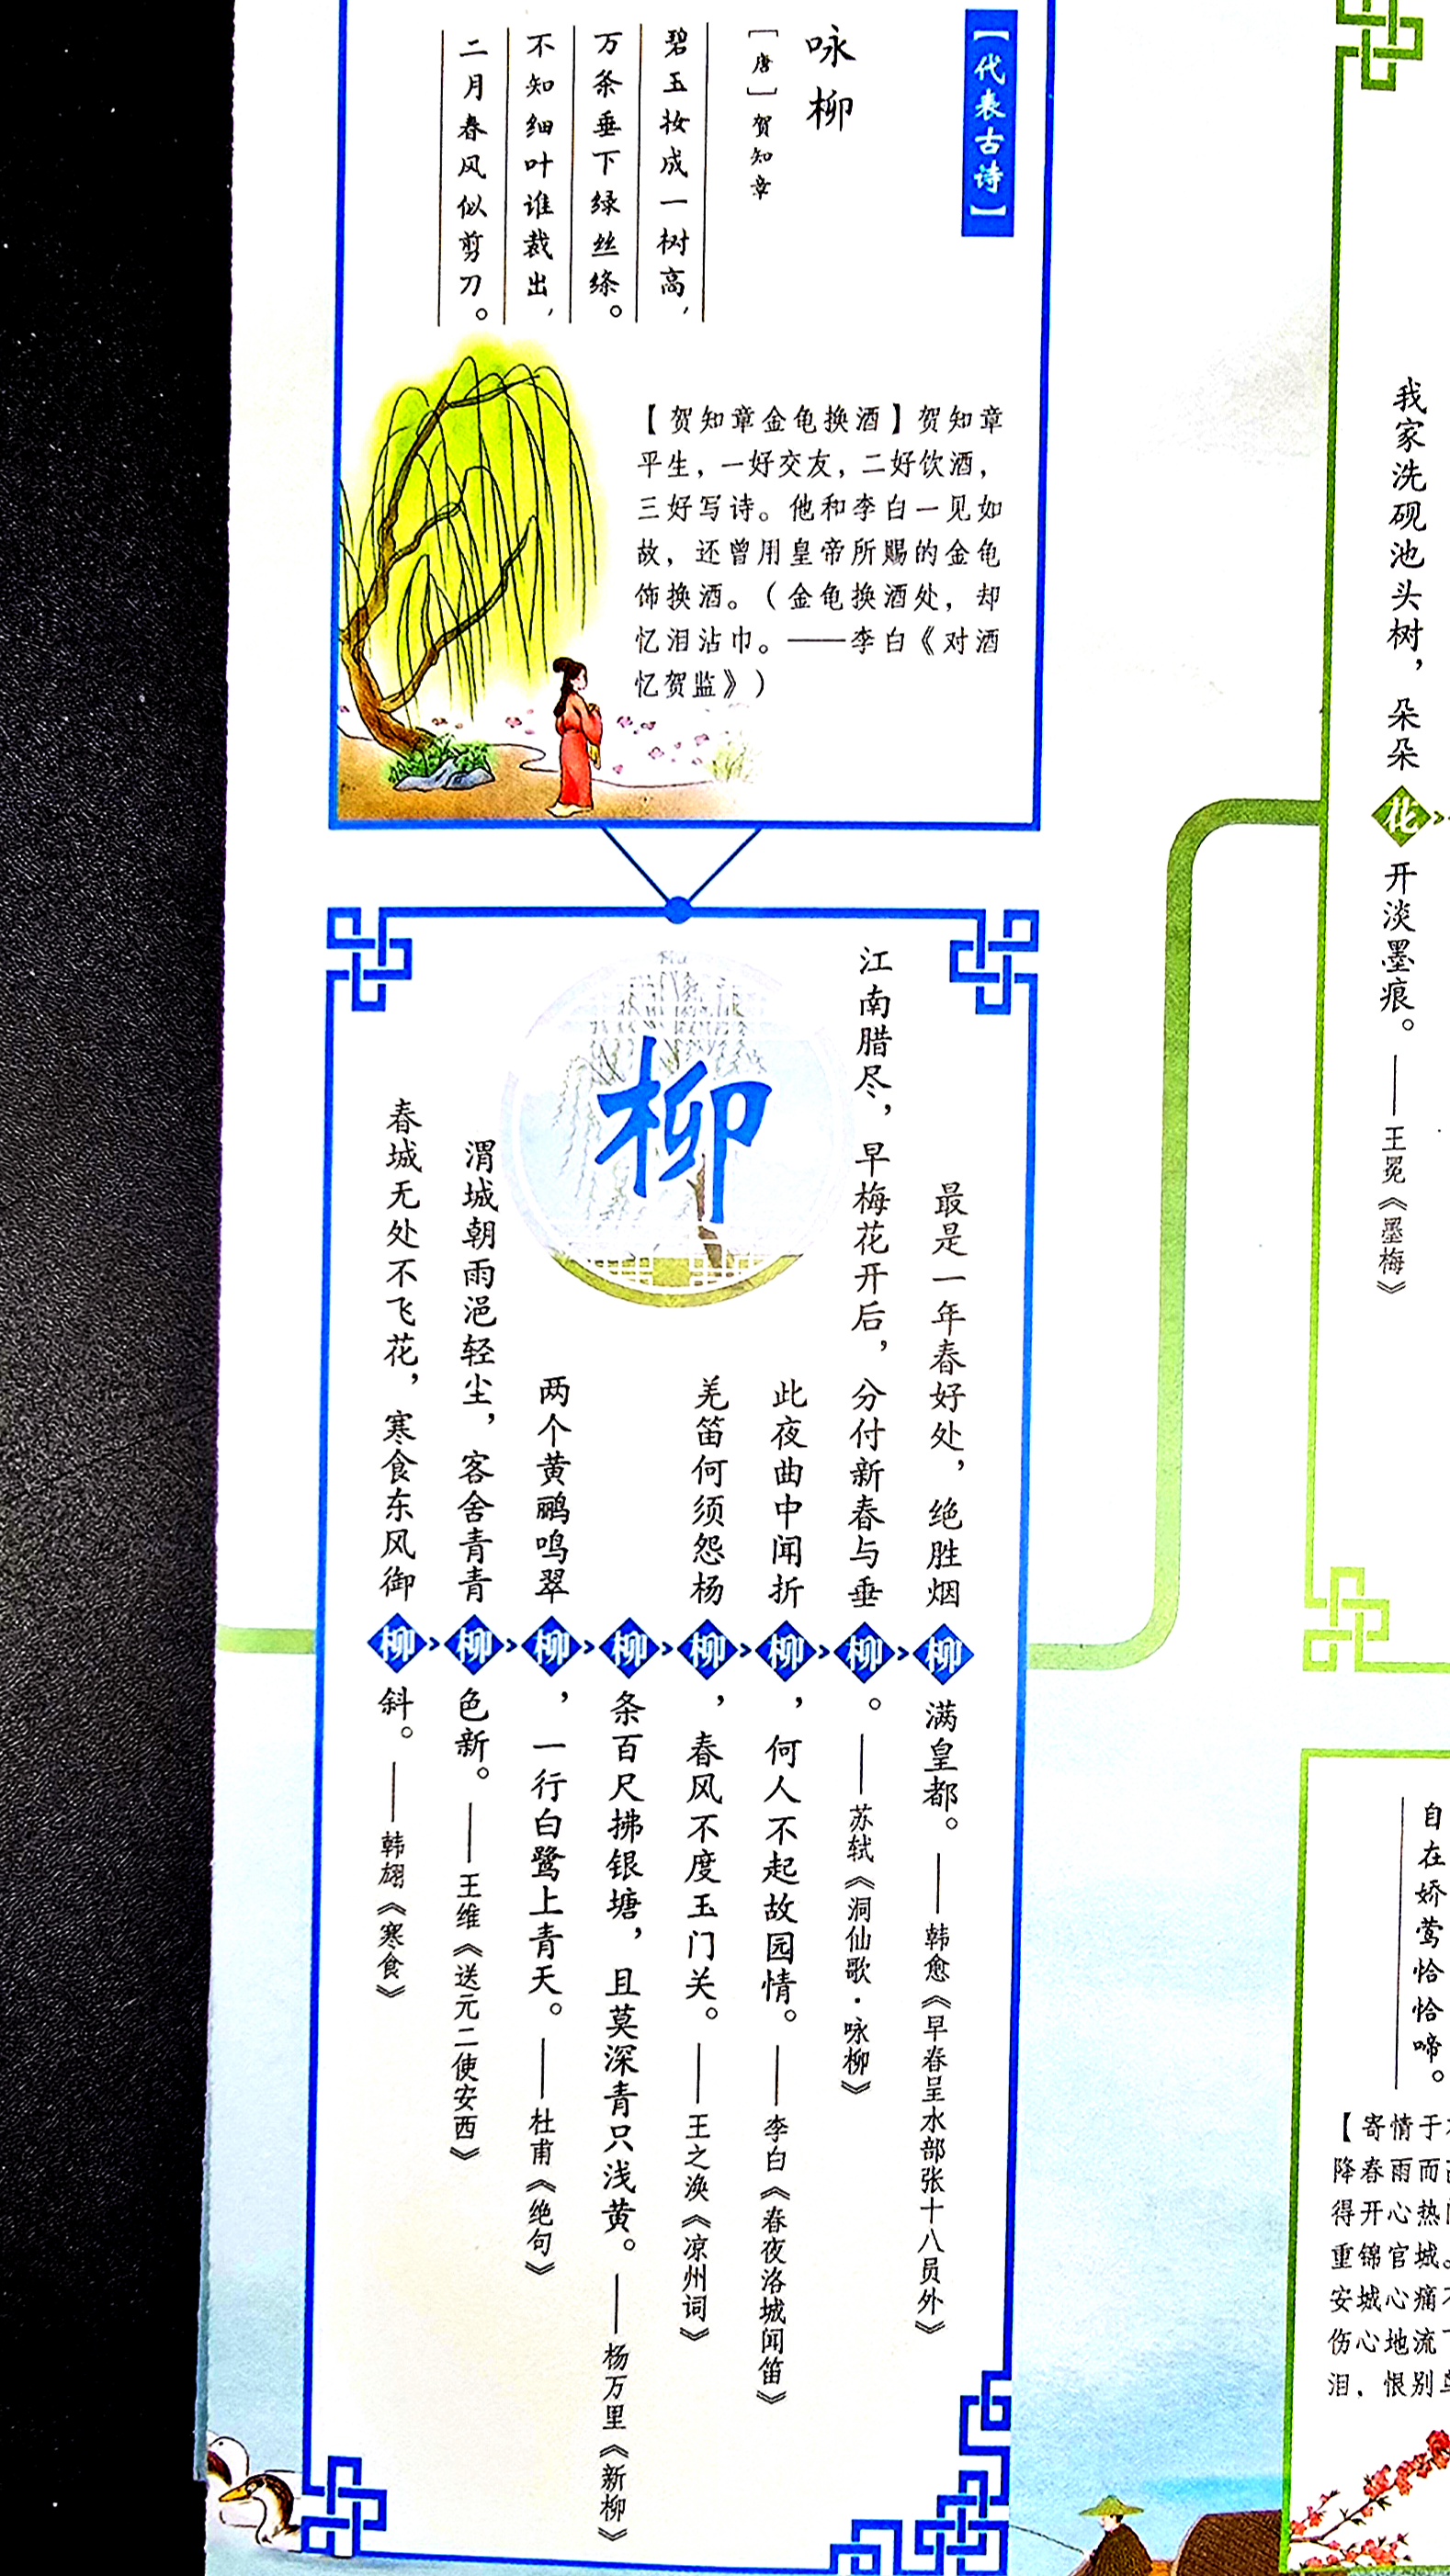 【代表古诗】
咏柳
［唐］贺知章
碧玉妆成一树高，
万条垂下绿丝绦。
不知细叶谁裁出，
二月春风似剪刀。
【贺知章金龟换酒】贺知章
平生，一好交友，二好饮酒，
三好写诗。他和李白一见如
故，还曾用皇帝所赐的金龟
饰换酒。（金龟换酒处，却
忆泪沾巾。——李白《对酒
忆贺监》）
柳
最是一年春好处，绝胜烟柳满皇都。——韩愈《早春呈水部张十八员外》
江南腊尽，早梅花开后，分付新春与垂柳。——苏轼《洞仙歌·咏柳》
此夜曲中闻折柳，何人不起故园情。——李白《春夜洛城闻笛》
羌笛何须怨杨柳，春风不度玉门关。——王之涣《凉州词》
柳条百尺拂银塘，且莫深青只浅黄。——杨万里《新柳》
两个黄鹂鸣翠柳，一行白鹭上青天。——杜甫《绝句》
渭城朝雨浥轻尘，客舍青青柳色新。——王维《送元二使安西》
春城无处不飞花，寒食东风御柳斜。——韩翃《寒食》
我家洗砚池头树，朵朵花开淡墨痕。——王冕《墨梅》
自在娇莺恰恰啼。
【寄情于
降春雨而
得开心热
重锦官城。
安城心痛
伤心地流
泪，恨别